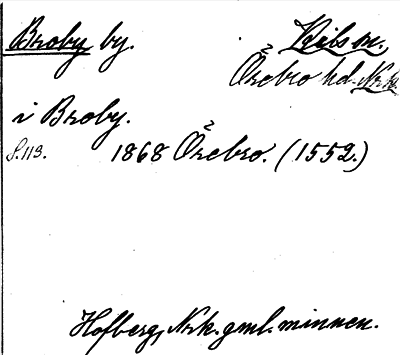 Broby by. Kils sn.
Örebro hd. Nrk.
i Broby.
s. 113. 1868 Örebro. (1552.)
Hofberg, Nrk. gml. minnen.